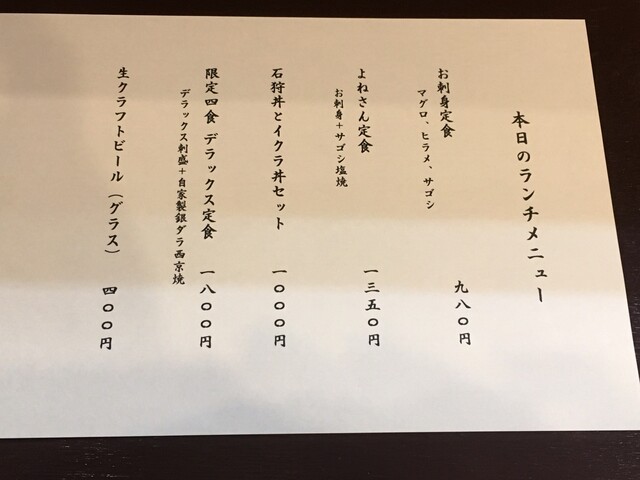 本日のランチメニュー
お刺身定食 九八〇円
マグロ、ヒラメ、サゴシ
よねさん定食 一三五〇円
お刺身+サゴシ塩焼
石狩丼とイクラ丼セット 一〇〇〇円
限定四食 デラックス定食 一八〇〇円
デラックス刺盛+自家製銀ダラ西京焼
生クラフトビール(グラス) 四〇〇円